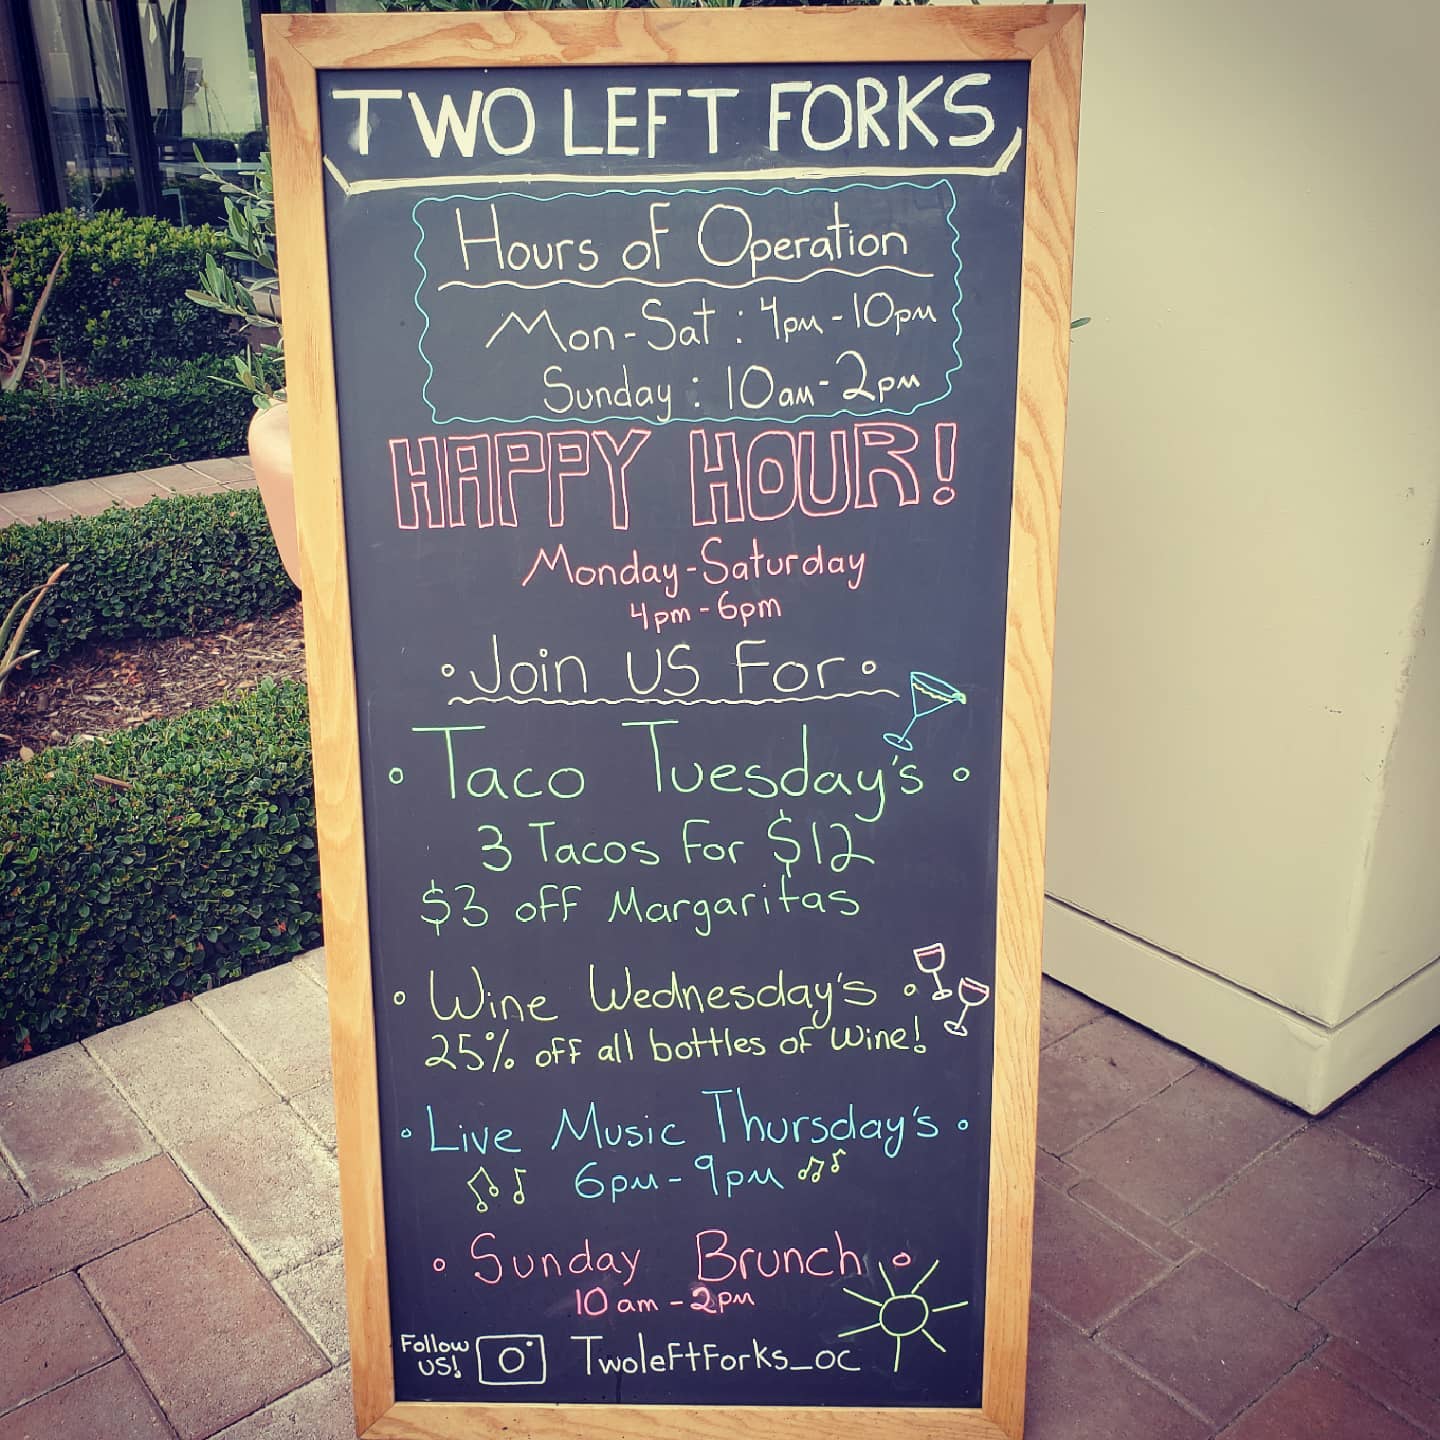 TWO LEFT FORKS
Hours of Operation
Mon-Sat : 4pm-10pm
Sunday : 10am-2pm
HAPPY HOUR!
Monday-Saturday
4pm-6pm
• Join US For •
• Taco Tuesday's •
3 Tacos For $12
$3 off Margaritas
• Wine Wednesday's •
25% off all bottles of wine!
• Live Music Thursday's •
6pm-9pm
• Sunday Brunch •
10am-2pm
Follow US! TwoleftForks_oc